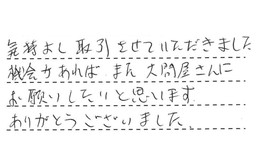 気持よし取引をせていただきました
機会があれば、また大問屋さんに
お願いしたいと思います
ありがとうございました。